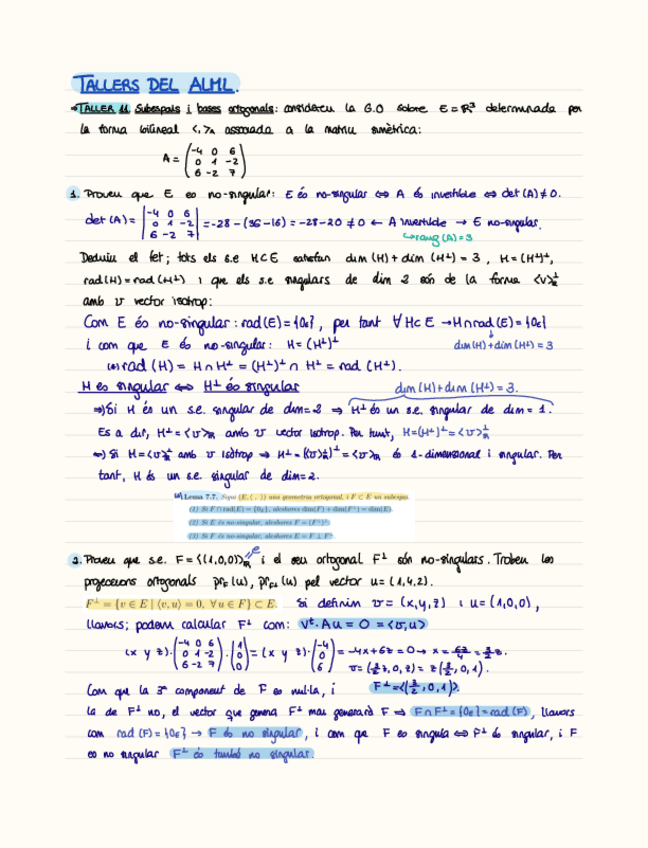 TALLERS DEL ALML.
→TALLER 11 Subespais i bases ortogonals: considereu la G.O sobre E = ℝ³ determinada per
la forma bilineal <,>A associada a la matriu simètrica:
A = (-4 0 6 / 0 1 -2 / 6 -2 7)
1. Proveu que E es no-singular: E és no-singular ⇔ A és invertible ⇔ det(A) ≠ 0.
det(A) = |-4 0 6 / 0 1 -2 / 6 -2 7| = -28 - (36-16) = -28-20 ≠ 0 ← A invertible → E no-singular.
↳ rang(A)=3
Deduïu el fet; tots els s.e H⊂E satisfan dim(H)+dim(H⊥) = 3, H=(H⊥)⊥,
rad(H)=rad(H⊥) i que els s.e singulars de dim 2 són de la forma <v>⊥
amb v vector isòtrop:
Com E és no-singular: rad(E)={0E}, per tant ∀H⊂E → H∩rad(E)={0E}
i com que E és no-singular: H=(H⊥)⊥ dim(H)+dim(H⊥)=3
rad(H) = H∩H⊥ = (H⊥)⊥ ∩ H⊥ = rad(H⊥).
H es singular ⇔ H⊥ és singular dim(H)+dim(H⊥)=3.
⇒) Si H és un s.e. singular de dim=2 ⇒ H⊥ és un s.e. singular de dim=1.
Es a dir, H⊥=<v>ℝ amb v vector isòtrop. Per tant, H=(H⊥)⊥=<v>⊥ℝ
⇐) Si H=<v>⊥ℝ amb v isòtrop ⇒ H⊥=(<v>⊥ℝ)⊥=<v>ℝ és 1-dimensional i singular. Per
tant, H és un s.e. singular de dim=2.
Lema 7.7. Sigui (E, ⟨ , ⟩) una geometria ortogonal, i F ⊂ E un subespai.
(1) Si F ∩ rad(E) = {0E}, aleshores dim(F) + dim(F⊥) = dim(E).
(2) Si E és no-singular, aleshores F = (F⊥)⊥.
(3) Si F és no-singular, aleshores E = F ⊥ F⊥.
2. Proveu que s.e. F=<(1,0,0)>ℝ i el seu ortogonal F⊥ són no-singulars. Trobeu les
projeccions ortogonals prF(u), prF⊥(u) pel vector u=(1,4,2).
F⊥ = {v ∈ E | ⟨v, u⟩ = 0, ∀ u ∈ F} ⊂ E. Si definim v=(x,y,z) i u=(1,0,0),
llavors; podem calcular F⊥ com: vt·Au = 0 = <v,u>
(x y z)·(-4 0 6 / 0 1 -2 / 6 -2 7)·(1 / 0 / 0) = (x y z)·(-4 / 0 / 6) = -4x+6z=0 → x = 6z/4 = 3/2 z.
v=(3/2 z, 0, z) = z(3/2, 0, 1).
Com que la 3ª component de F es nul·la, i F⊥=<(3/2, 0, 1)>.
la de F⊥ no, el vector que genera F⊥ mai generarà F ⇒ F∩F⊥={0E}=rad(F), llavors
com rad(F)={0E} → F és no singular, i com que F es singula ⇔ F⊥ és singular, i F
es no singular F⊥ és també no singular.